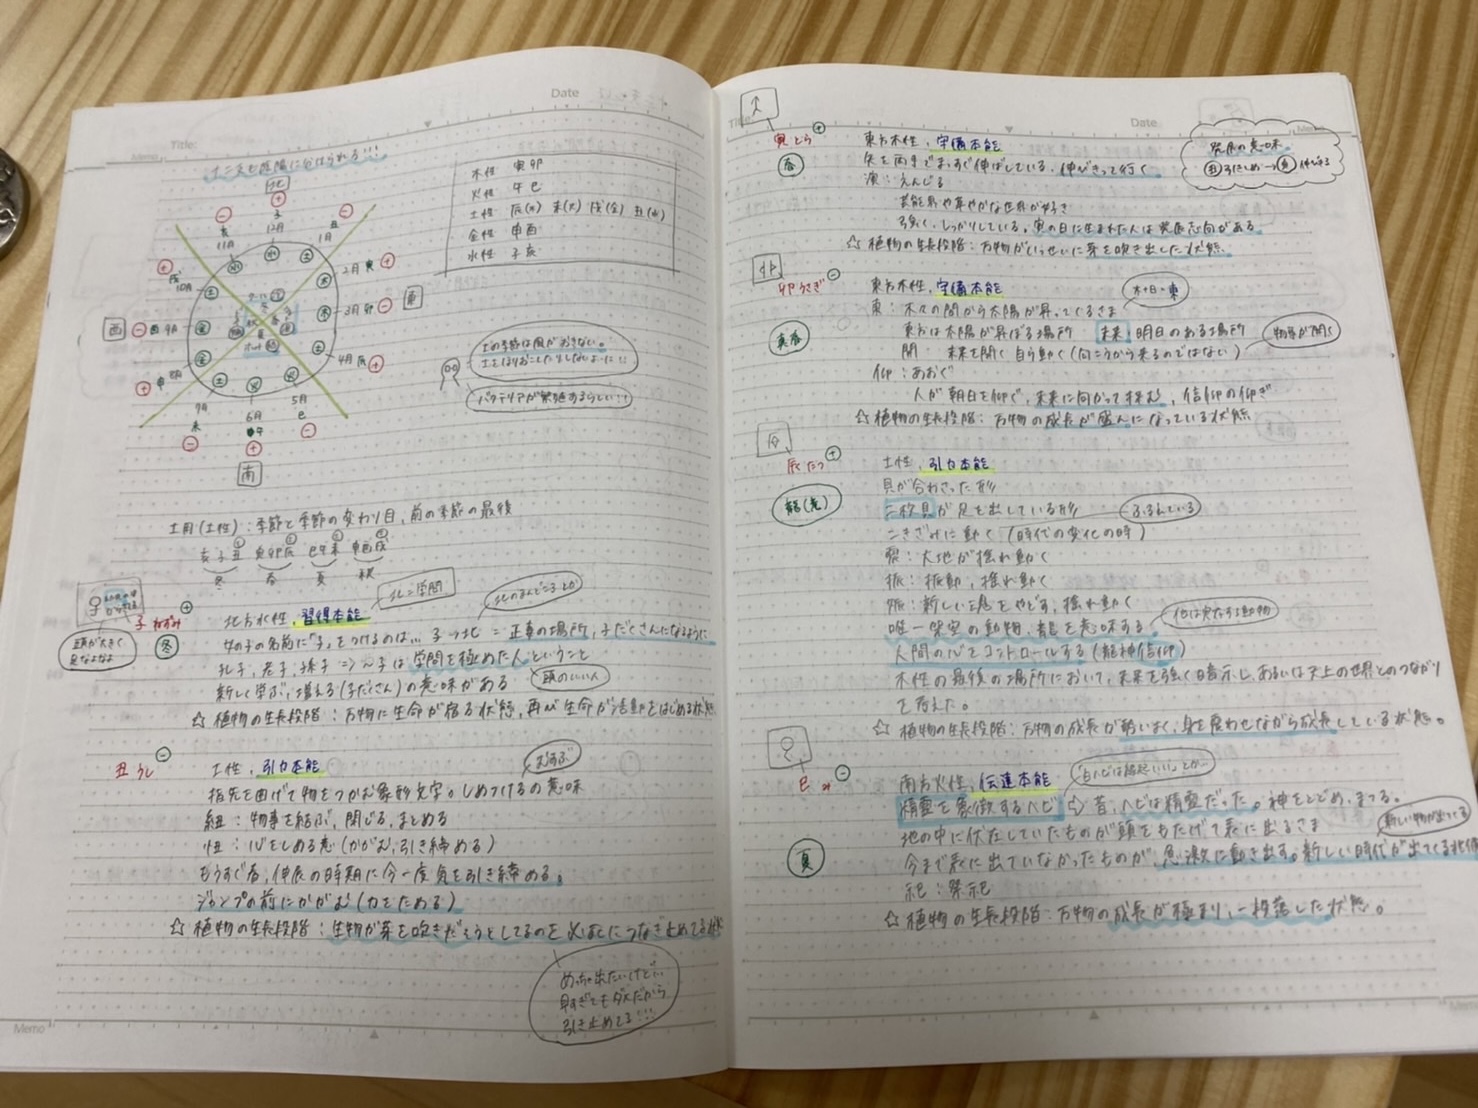 Date
Title:
Memo
十二支も陰陽に分けられる!!!
北
⊕
子
12月
⊖
亥
11月
⊖
丑
1月
⊕
戌
10月
2月 寅 ⊕
西 ⊖ 酉 9月
3月 卯 ⊖ 東
⊕ 申 8月
4月 辰 ⊕
7月
未
⊖
6月
午
⊕
5月
巳
⊖
南
水 水 土
土 木
金 木
金 土
土 火 火
木性 寅卯
火性 午巳
土性 辰(木) 未(火) 戌(金) 丑(水)
金性 申酉
水性 子亥
土の季節は風がおきない。
土をほりおこしたりしないように!!
バクテリアが繁殖するらしい!!
土用(土性):季節と季節の変わり目、前の季節の最後
亥子丑 寅卯辰 巳午未 申酉戌
冬 春 夏 秋
頭が大きく
足なよなよ
子 ねずみ ⊕
冬
北方水性、習得本能
北=学問
女の子の名前に「子」をつけるのは… 子→北=正妻の場所、子だくさんになるように
孔子、老子、孫子⇒〜子は学問を極めた人ということ
頭のいい人
新しく学ぶ、増える(子だくさん)の意味がある
☆植物の生長段階:万物に生命が宿る状態、再び生命が活動をはじめる状態
丑 うし ⊖
土性、引力本能
むすぶ
指先を曲げて物をつかむ象形文字。しめつけるの意味
紐:物事を結ぶ、閉じる、まとめる
忸:心をしめる意(かがむ、引き締める)
もうすぐ春、伸長の時期に今一度気を引き締める。
ジャンプの前にかがむ(力をためる)
☆植物の生長段階:生物が芽を吹きだそうとしてるのを必死につなぎ止めてる状態
めっちゃ出たいけどい
早すぎてもダメだから
引き止めてる!!!
Memo
Title
Date
Memo
寅 とら ⊕
春
東方木性、守備本能
矢を両手でまっすぐ伸ばしている、伸びきって行く
演:えんじる
芸能界や華やかな世界が好き
力強く、しっかりしている。寅の日に生まれた人は発展志向がある
☆植物の生長段階:万物がいっせいに芽を吹き出した状態
発展の意味
丑 引きしめ→寅 伸びる
卯
卯 うさぎ ⊖
真春
東方木性、守備本能
木+日=東
東:木々の間から太陽が昇ってくるさま
東方は太陽が昇ぼる場所 未来・明日のある場所
物事が開く
開 未来を開く 自ら動く(向こうから来るのではない)
仰:あおぐ
人が朝日を仰ぐ、未来に向かって拝む、信仰の仰ぎ
☆植物の生長段階:万物の成長が盛んになっている状態
辰 たつ ⊕
龍(春)
土性、引力本能
貝が合わさった形
二枚貝が足を出している形
ふるえている
こきざみに動く(時代の変化の時)
裂:大地が揺れ動く
振:振動、揺れ動く
娠:新しい魂をやどす、揺れ動く
他は実在する動物
唯一架空の動物、龍を意味する。
人間の心をコントロールする(龍神信仰)
木性の最後の場所において、未来を強く暗示し、あるいは天上の世界とのつながり
を考えた。
☆植物の生長段階:万物の成長が勢いよく、身を震わせながら成長している状態。
巳 み ⊖
夏
南方火性、伝達本能
「白ヘビは縁起いい」とか…
精霊を象徴するヘビ ⇨ 昔、ヘビは精霊だった。神をとどめ、まつる。
地の中に伏在していたものが頭をもたげて表に出るさま
新しい物が出ている
今まで表に出ていなかったものが、急激に動き出す。新しい時代が出てくる状態
祀:祭祀
☆植物の生長段階:万物の成長が極まり、一段落した状態。
Memo